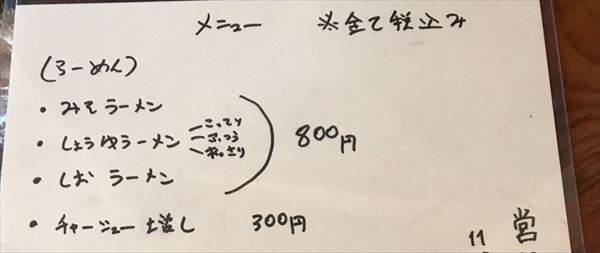 メニュー ※全て税込み
(らーめん)
・みそラーメン
・しょうゆラーメン こってり
ふつう
あっさり
・しお ラーメン
800円
・チャーシュー増し 300円
営
11